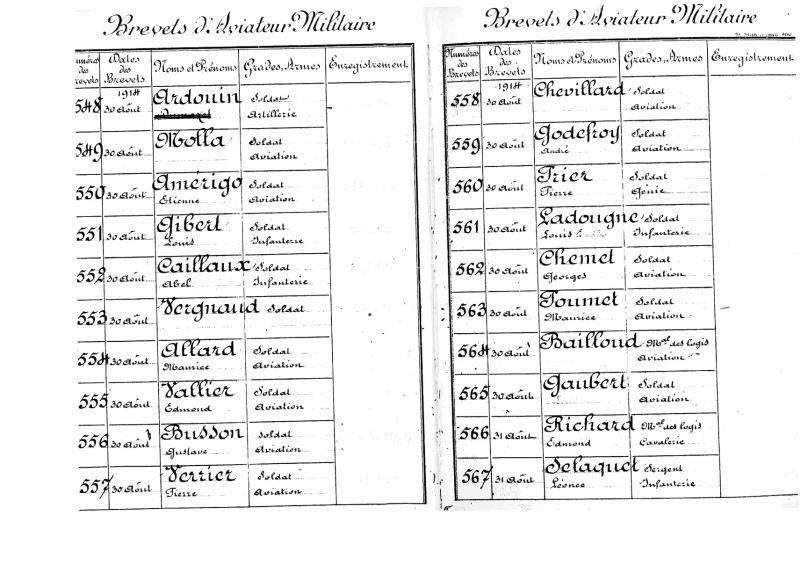 Brevets d'Aviateur Militaire
Numéros des Brevets | Dates des Brevets | Noms et Prénoms | Grades, Armes | Enregistrement
1914
548 | 30 Août | Ardouin | Soldat
Artillerie
549 | 30 Août | Molla | Soldat
Aviation
550 | 30 Août | Amérigo | Soldat
Etienne | Aviation
551 | 30 Août | Gibert | Soldat
Louis | Infanterie
552 | 30 Août | Caillaux | Soldat
Abel | Infanterie
553 | 30 Août | Vergnaud | Soldat
554 | 30 Août | Allard | Soldat
Maurice | Aviation
555 | 30 Août | Vallier | Soldat
Edmond | Aviation
556 | 30 Août | Busson | Soldat
Gustave | Aviation
557 | 30 Août | Verrier | Soldat
Pierre | Aviation
Brevets d'Aviateur Militaire
Numéros des Brevets | Dates des Brevets | Noms et Prénoms | Grades, Armes | Enregistrement
1914
558 | 30 Août | Chevillard | Soldat
Aviation
559 | 30 Août | Godefroy | Soldat
André | Aviation
560 | 30 Août | Trier | Soldat
Pierre | Génie
561 | 30 Août | Ladougne | Soldat
Louis | Infanterie
562 | 30 Août | Chemet | Soldat
Georges | Aviation
563 | 30 Août | Toumet | Soldat
Maurice | Aviation
564 | 30 Août | Bailloud | Mal des logis
Aviation
565 | 30 Août | Gaubert | Soldat
Aviation
566 | 31 Août | Richard | Mal des logis
Edmond | Cavalerie
567 | 31 Août | Selaquet | Sergent
Léonce | Infanterie